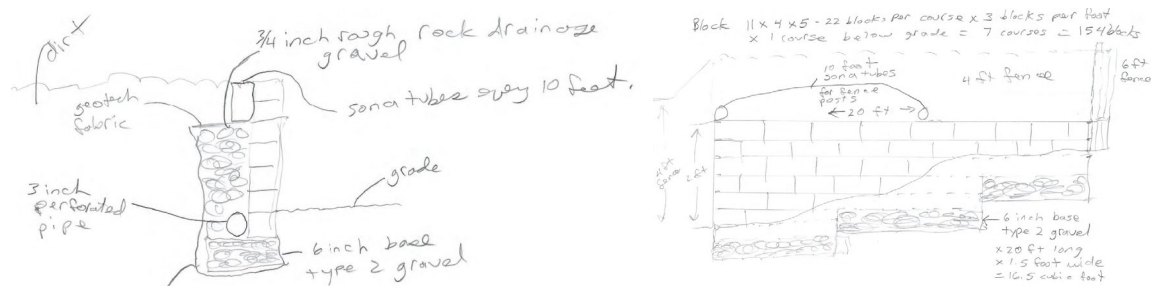 dirt
3/4 inch rough rock drainage
gravel
geotech
fabric
sona tubes every 10 feet.
3 inch
perforated
pipe
grade
6 inch base
type 2 gravel
Block 11 x 4 x 5 - 22 blocks per course x 3 blocks per foot
x 1 course below grade = 7 courses = 154 blocks
10 foot
sona tubes
for fence
posts
← 20 ft →
4 ft fence
6 ft
fence
4 ft
fence
2 ft
6 inch base
type 2 gravel
x 20 ft long
x 1.5 foot wide
= 16.5 cubic foot